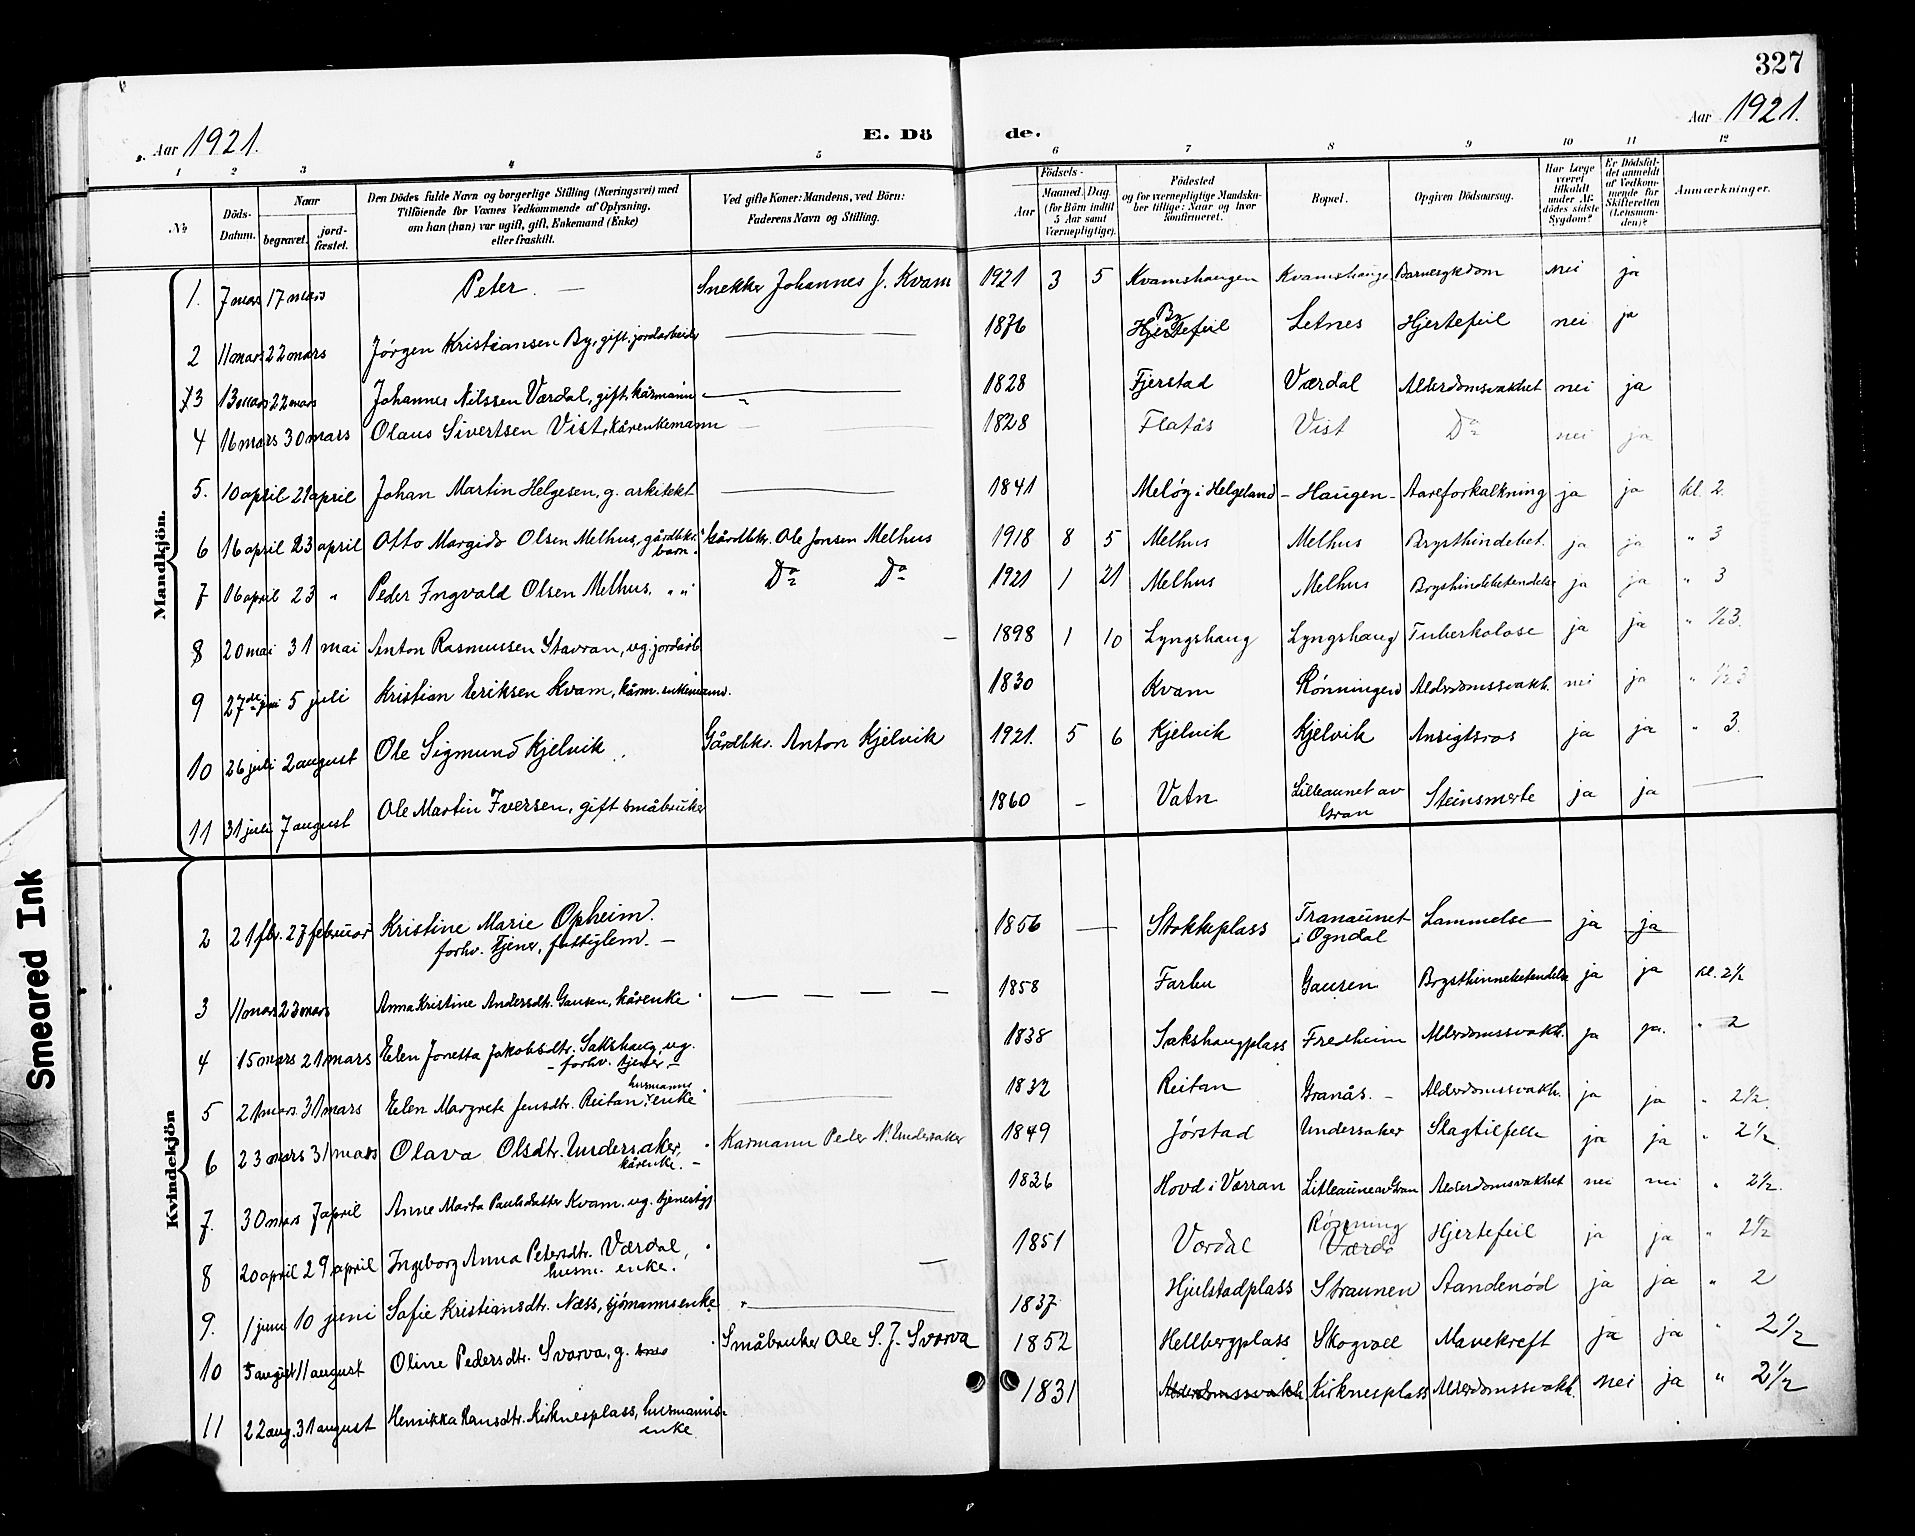 327
Aar 1921.
E. Dö
de.
Aar 1921.
1 2 3 4 5 6 7 8 9 10 11 12
No
Döds-Datum.
Naar
begravet.
jord-fæstet.
Den Dödes fulde Navn og borgerlige Stilling (Næringsvei) med
Tilföiende for Voxnes Vedkommende af Oplysning,
om han (hun) var ugift, gift, Enkemand (Enke)
eller fraskilt.
Ved gifte Koner: Mandens, ved Börn:
Faderens Navn og Stilling.
Födsels-
Aar
Maaned. Dag.
(for Börn indtil
5 Aar samt
Værnepligtige).
Födested
og for værnepligtige Mandska-
ber tillige: Naar og hvor
konfirmeret.
Bopæl.
Opgiven Dödsaarsag.
Har Læge
været
tilkaldt
under Af-
dödes sidste
Sygdom?
Er Dödsfal-
det anmeldt
af Vedkom-
mende for
Skifteretten
(Lensman-
den)?
Anmærkninger.
Mandkjön.
1. 7 mars 17 mars Peter. — Snekker Johannes J. Kvam 1921 3 5 Kvamshaugen Kvamshauge Barnesykdom nei ja
2 11 mars 22 mars Jörgen Kristiansen By, gift jordarbeider — 1876 By Hjertefeil Letnes Hjertefeil nei ja
3 13 mars 22 mars Johannes Nilssen Værdal, gift, kårmann — 1828 Fjerstad Værdal Alderdomsvakhet nei ja
4 16 mars 30 mars Olaus Sivertsen Vist, kårenkemann — 1828 Flatås Vist Do nei ja
5. 10 april 21 april Johan Martin Helgesen, g. arkitekt — 1841 Melöy i Helgeland - Haugen - Aareforkalkning ja ja kl. 2.
6 16 april 23 april Otto Margido Olsen Melhus, gårdbkr. barn. Gårdbkr. Ole Jonsen Melhus 1918 8 5 Melhus Melhus Brysthindebet. ja ja " 3
7 16 april 23 " Peder Ingvald Olsen Melhus. " " Do Do 1921 1 21 Melhus Melhus Brysthindebetendelse ja ja " 3
8 20 mai 31 mai Anton Rasmussen Stavran, ug. jordarb. - 1898 1 10 Lyngshaug Lyngshaug Tuberkolose ja ja " 1/2 3.
9 27de juni 5 juli Kristian Eriksen Kvam, kårm. enkemand. 1830 Kvam Rönningen Alderdomssvakh. nei ja " 1/2 3
10 26 juli 2 august Ole Sigmund Kjelvik Gårdbkr. Anton Kjelvik 1921. 5 6 Kjelvik Kjelvik Ansigtsros ja ja " 3.
11 31 juli 7 august Ole Martin Iversen, gift småbruker 1860 - Vatn Lilleaunet av Gran Steinsmerte ja ja —
Kvindekjön
2 21 fbr. 27 februar Kristine Marie Opheim.
forhv. tjener, fattiglem. - 1856 — Stokkeplass Tranaunet i Ogndal Lammelse ja ja
3 11 mars 23 mars Anna Kristine Andersdtr. Gausen, kårenke — — — — 1858 Farbu Gausen Brysthinnebetendelse ja ja kl. 2 1/2
4 15 mars 21 mars Elen Jonetta Jakobsdtr. Sakshaug, ug.
- forhv. tjener - 1838 Sakshaugplass Fredheim Alderdomssvakh. ja ja. " 2
5 21 mars 31 mars Elen Margrete Jensdtr. Reitan husmanns enke — 1832 Reitan Granås. - Alderdomssvakh. ja ja " 2 1/2.
6 23 mars 31 mars Olava Olsdtr. Undersaker,
kårenke. - Karmann Peder N. Undersaker 1849 Jörstad Undersaker Slagtilfelle ja ja " 2 1/2
7. 30 mars 7 april Anne Marta Paulsdatter Kvam. ug. tjenestpg. 1826 Hovd i Værran Litleaune av Gran Alderdomsvakhet nei nei " 2 1/2.
8 20 april 29 april Ingeborg Anna Petersdtr. Værdal,
husm. enke. — 1851 Værdal Rönning Værda Hjertefeil ja ja " 2 1/2
9. 1 juni 10 juni Safie Kristiansdtr. Næss, sjömannsenke — 1837 Hjulstadplass Straumen Aandenöd ja ja " 2
10 5 august 11 august Oline Pedersdtr. Svarva, g. Småbruker Ole S. J. Svarva 1852 Hellbergplass Skogvoll Mavekreft ja ja " 2 1/2
11 22 aug. 31 august Henrikka Hansdtr. Kirknesplass, husmanns-
enke 1831 Alderdomssvakh. Kirknesplass Alderdomssvakh. nei ja " 2 1/2
Smeared Ink